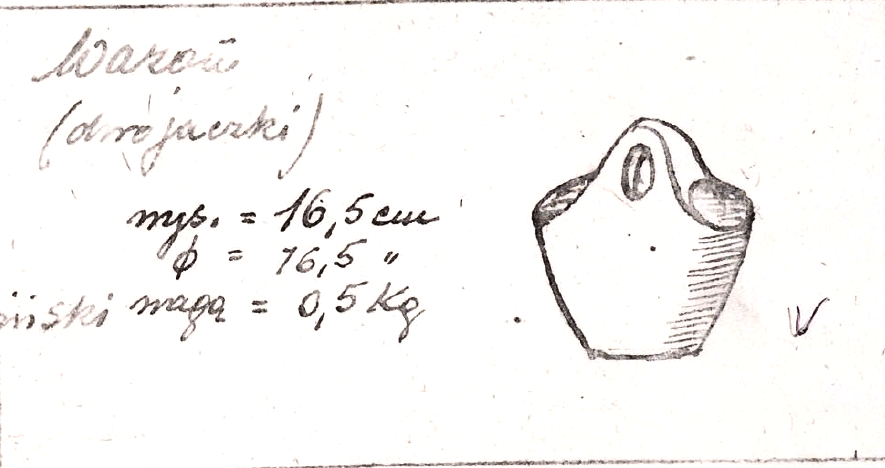 Wazon
(dwojaczki)
wys. = 16,5 cm
ϕ = 16,5 "
iński waga = 0,5 Kg